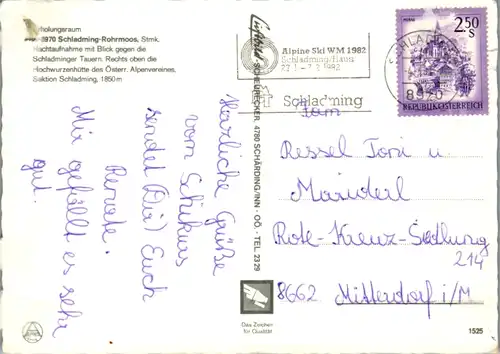 Erholungsraum
A-8970 Schladming-Rohrmoos, Stmk.
Nachtaufnahme mit Blick gegen die
Schladminger Tauern. Rechts oben die
Hochwurzenhütte des Österr. Alpenvereines,
Sektion Schladming, 1850m
Herzliche Grüße
vom Schikurs
sendet (Dir) Euch
Renate.
Mir gefällt es sehr
gut.
SCHEUERECKER, 4780 SCHÄRDING/INN - OÖ. - TEL 23 29
Alpine Ski WM 1982
Schladming/Haus
27.1.-7.2.1982
Schladming
SCHLADMING
8970
2.50
S
REPUBLIK ÖSTERREICH
Fam
Ressel Toni u.
Maiderl
Rote-Kreuz-Siedlung
214
8662 Mitterdorf i/M
Das Zeichen
für Qualität
1525